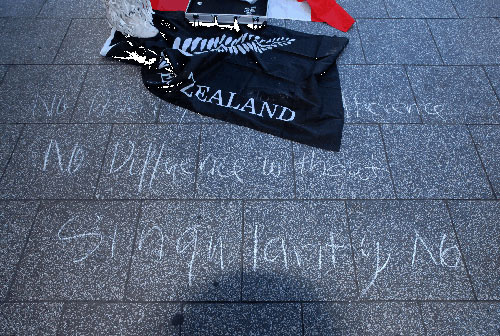 NEW ZEALAND
No
No Difference without
Singularity No